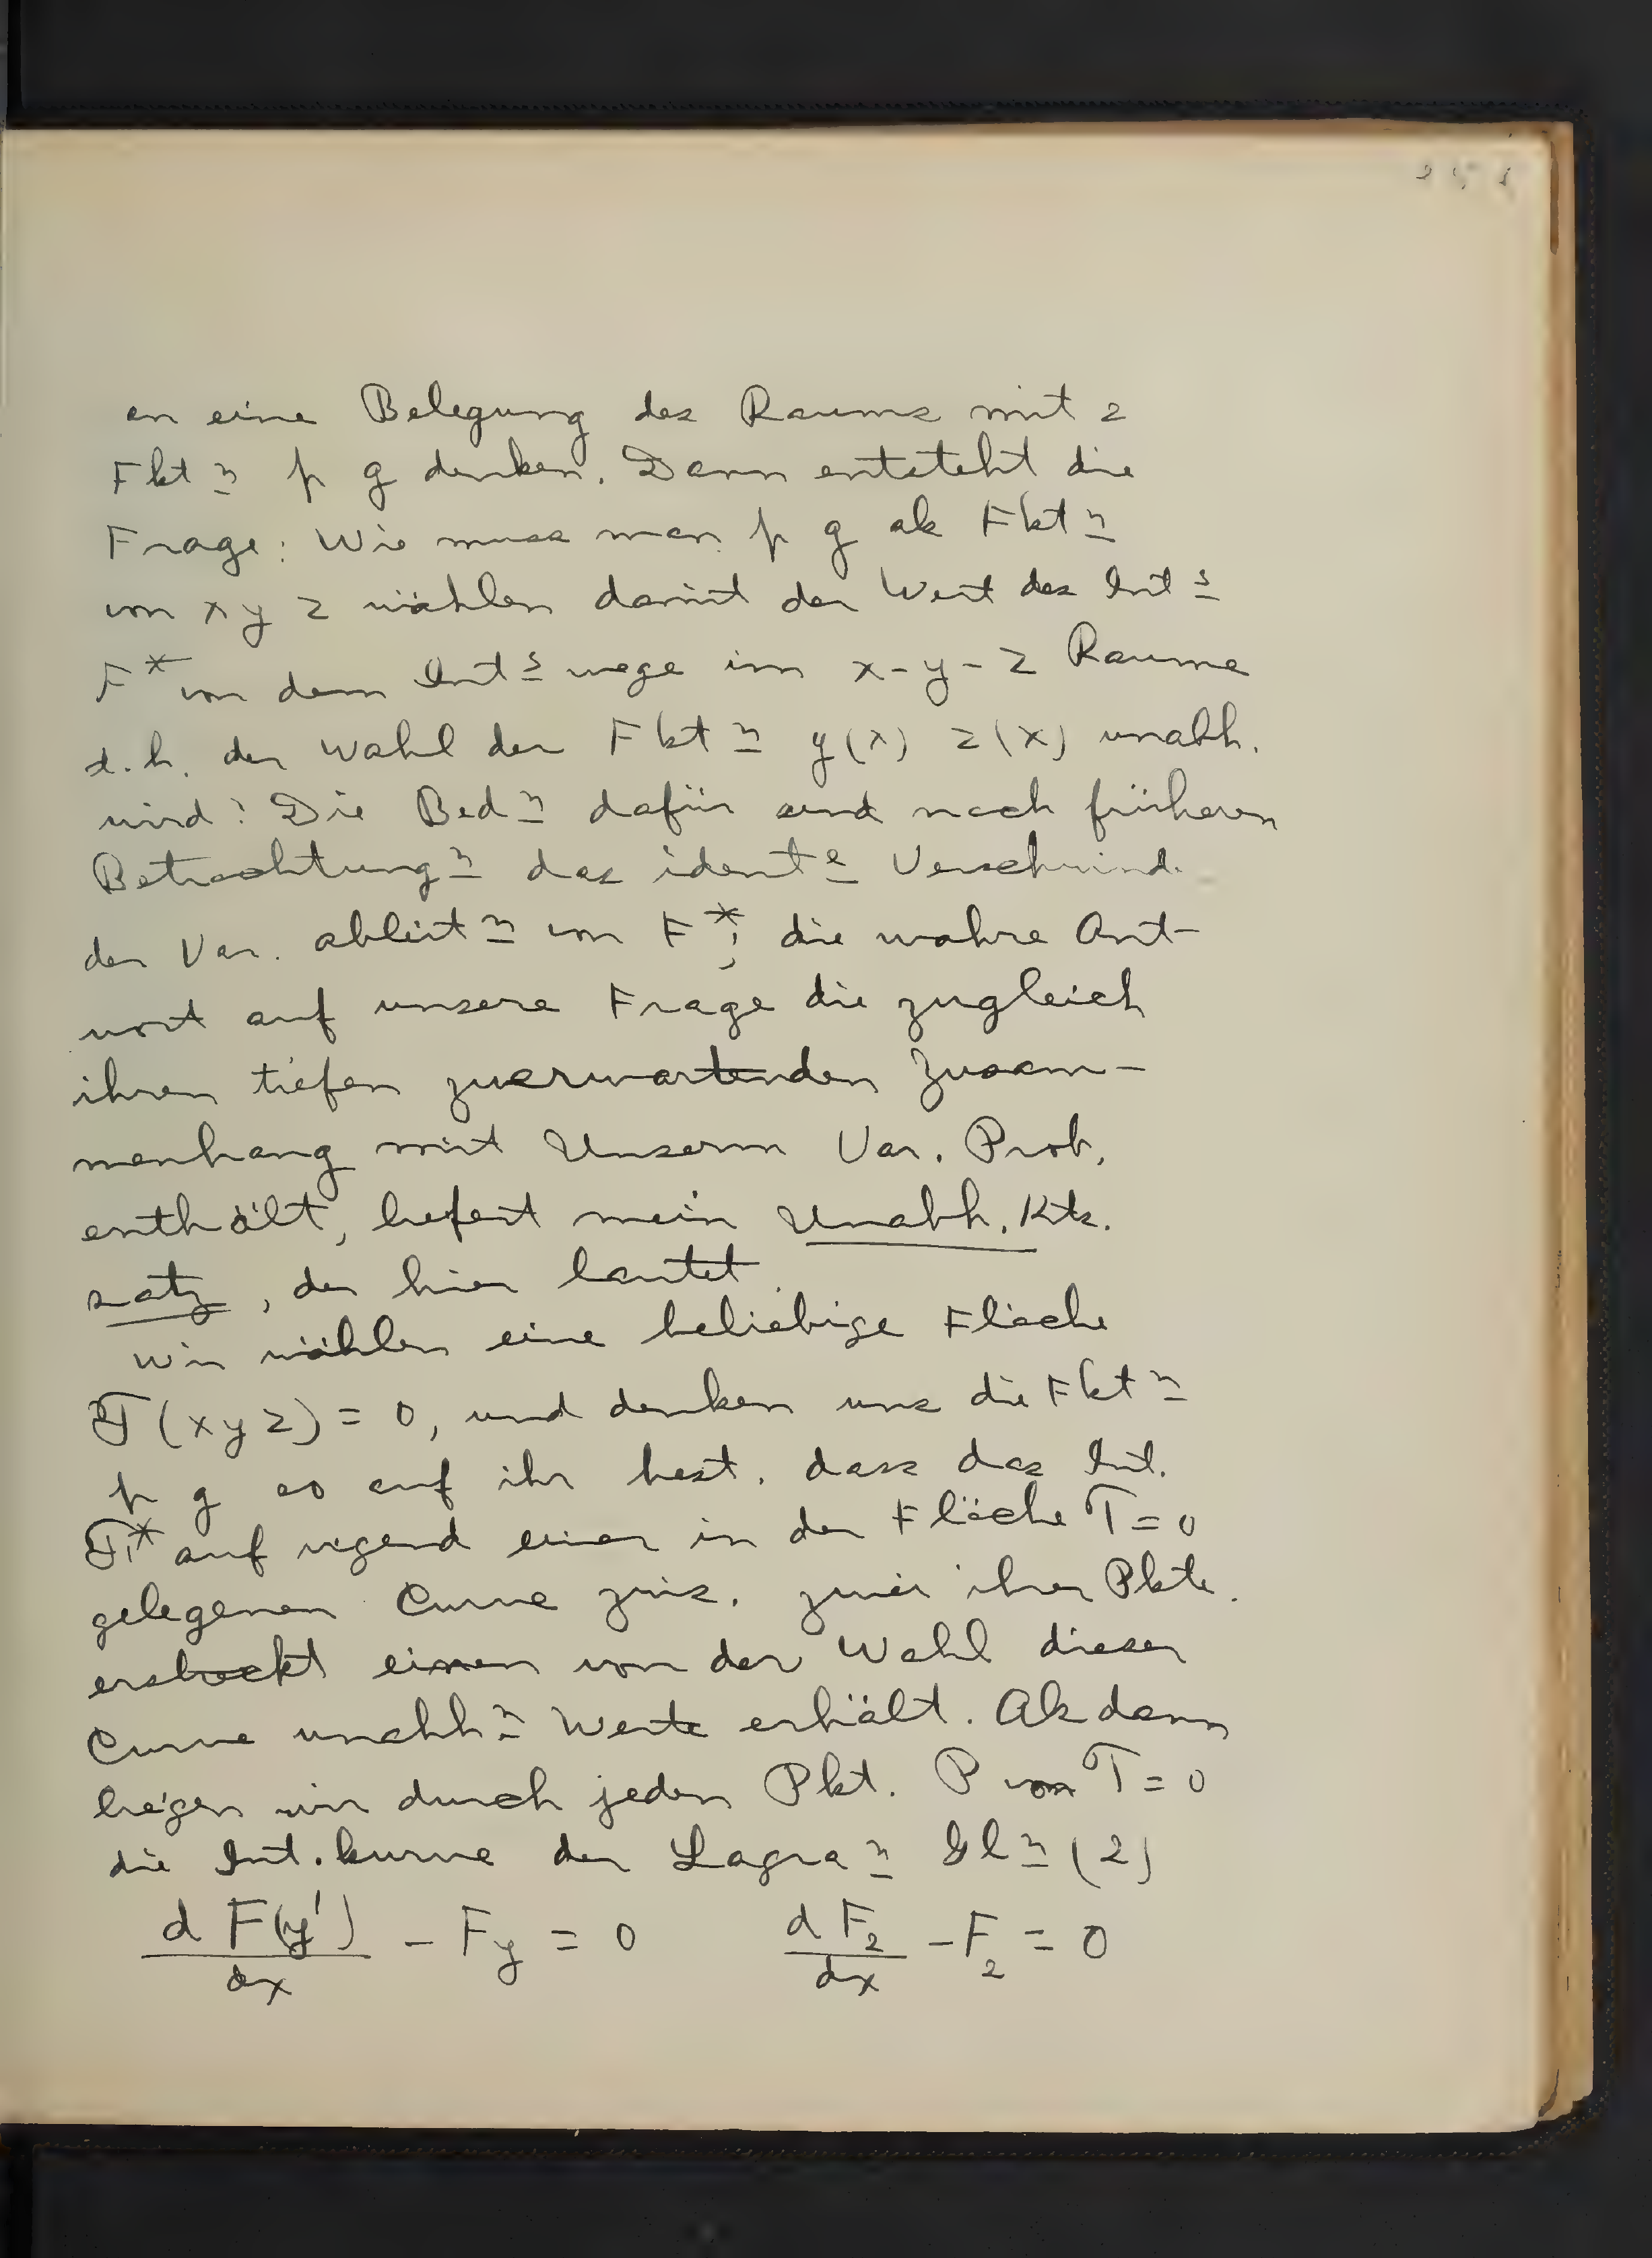 an eine Belegung des Raums mit 2
Fkt n p q denken. Dann entsteht die
Frage: Wie muss man p q als Fkt n
von x y z wählen damit der Wert des Int s
F* von dem Int s wege im x-y-z Raume
d.h. der Wahl der Fkt n y(x) z(x) unabh.
wird? Die Bed n dafür sind nach früheren
Betrachtung n das ident e Verschwind.
der Var. ableit n von F*; die wahre Ant-
wort auf unsere Frage die zugleich
ihren tiefen zuerwartenden Zusam-
menhang mit Unserm Var. Prob.
enthält, liefert mein Unabh. Kts.
satz, der hier lautet.
Wir wählen eine beliebige Fläche
T(xyz) = 0, und denken uns die Fkt n
p q so auf ihr best. dass das Int.
* auf irgend einer in der Fläche T=0
gelegenen Curve zwis. zwei ihrer Pkte.
erstreckt einen von der Wahl dieser
Curve unabh n Werte erhält. Alsdann
legen wir durch jeden Pkt. P von T=0
die Int.kurve der Lagra n Gl n (2)
d F(y')/dx - Fy = 0    d Fz/dx - Fz = 0